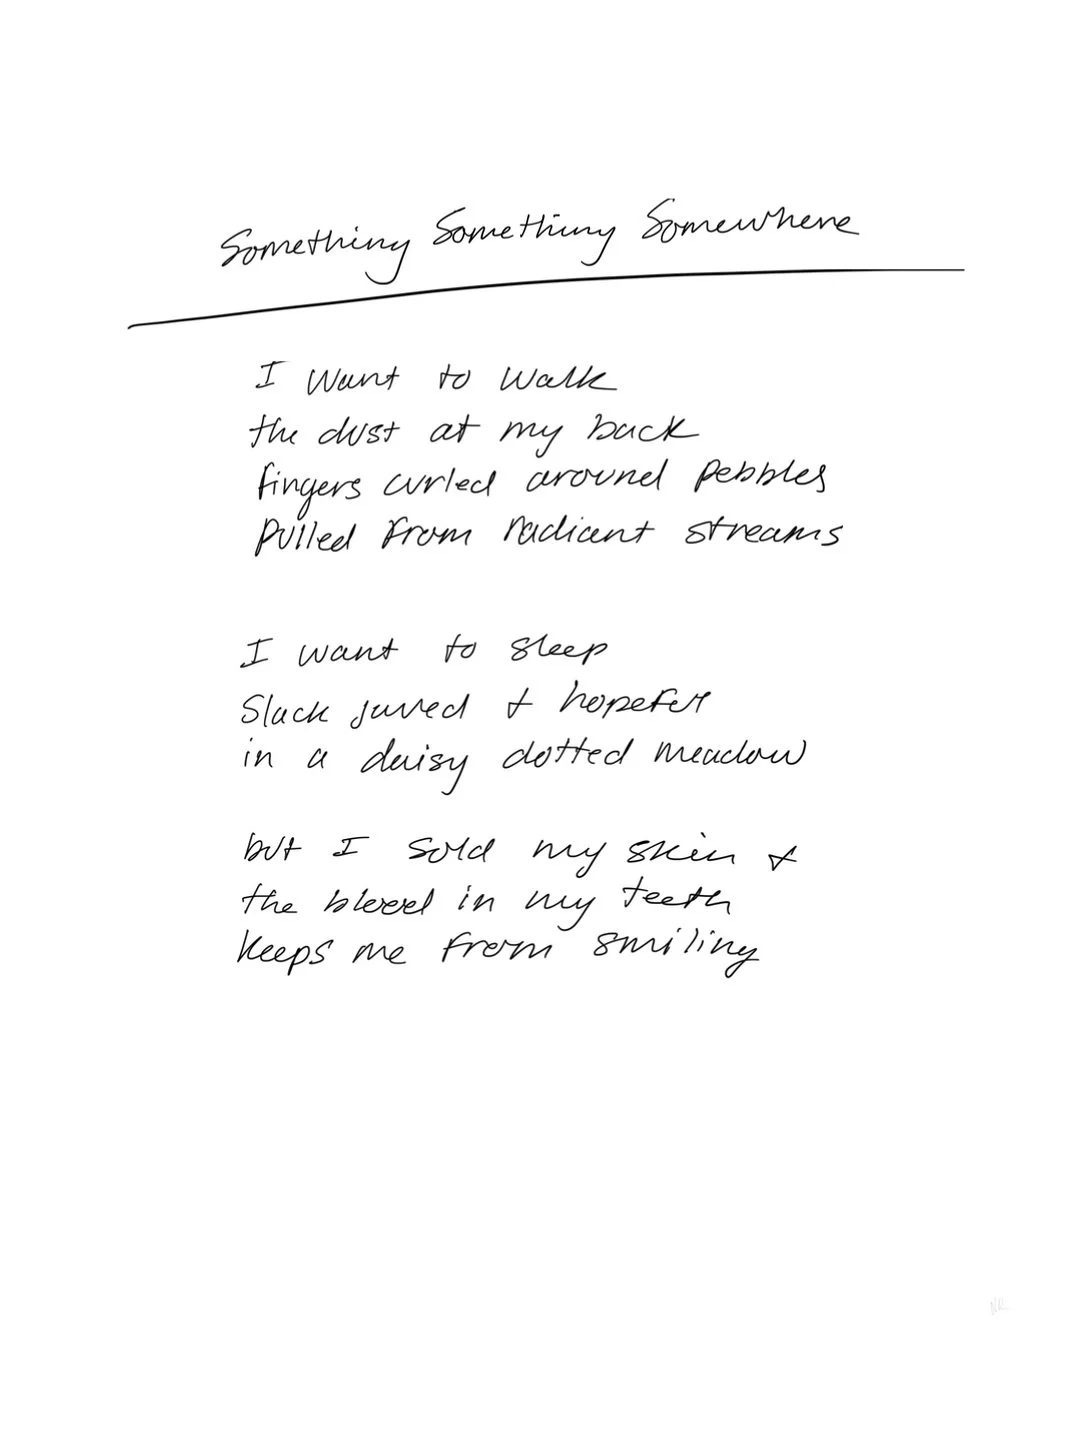 Something Something Somewhere
I want to walk
the dust at my back
fingers curled around pebbles
pulled from radiant streams
I want to sleep
Slack jawed & hopeful
in a daisy dotted meadow
but I sold my skin &
the blood in my teeth
keeps me from smiling
NR